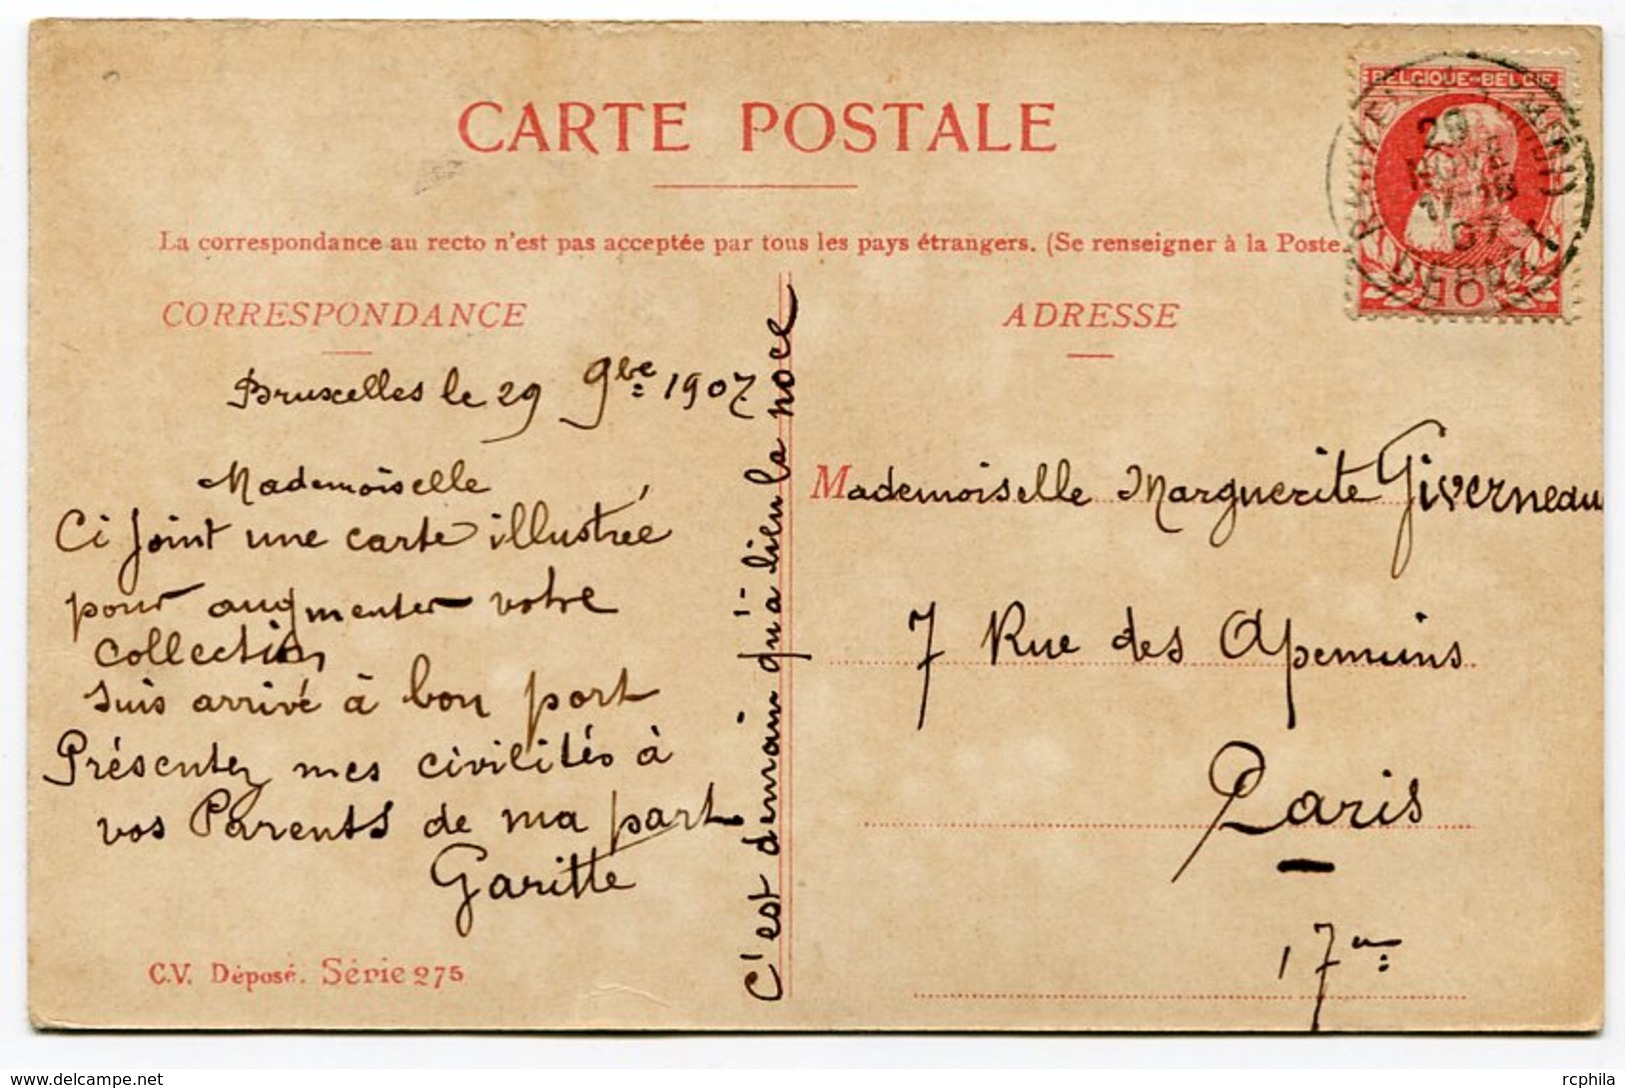 CARTE POSTALE
La correspondance au recto n'est pas acceptée par tous les pays étrangers. (Se renseigner à la Poste.
CORRESPONDANCE
Bruxelles le 29 9bre 1907
Mademoiselle
Ci joint une carte illustrée
pour augmenter votre
collection
suis arrivé à bon port
Présentez mes civilités à
vos Parents de ma part
Garitte
C'est demain qu'a lieu la noce
C.V. Déposé. Série 275
BELGIQUE-BELGIE
29
NOV
07
DEPART
10
ADRESSE
Mademoiselle Marguerite Giverneau
7 Rue des Apennins
Paris
17me
rcphila